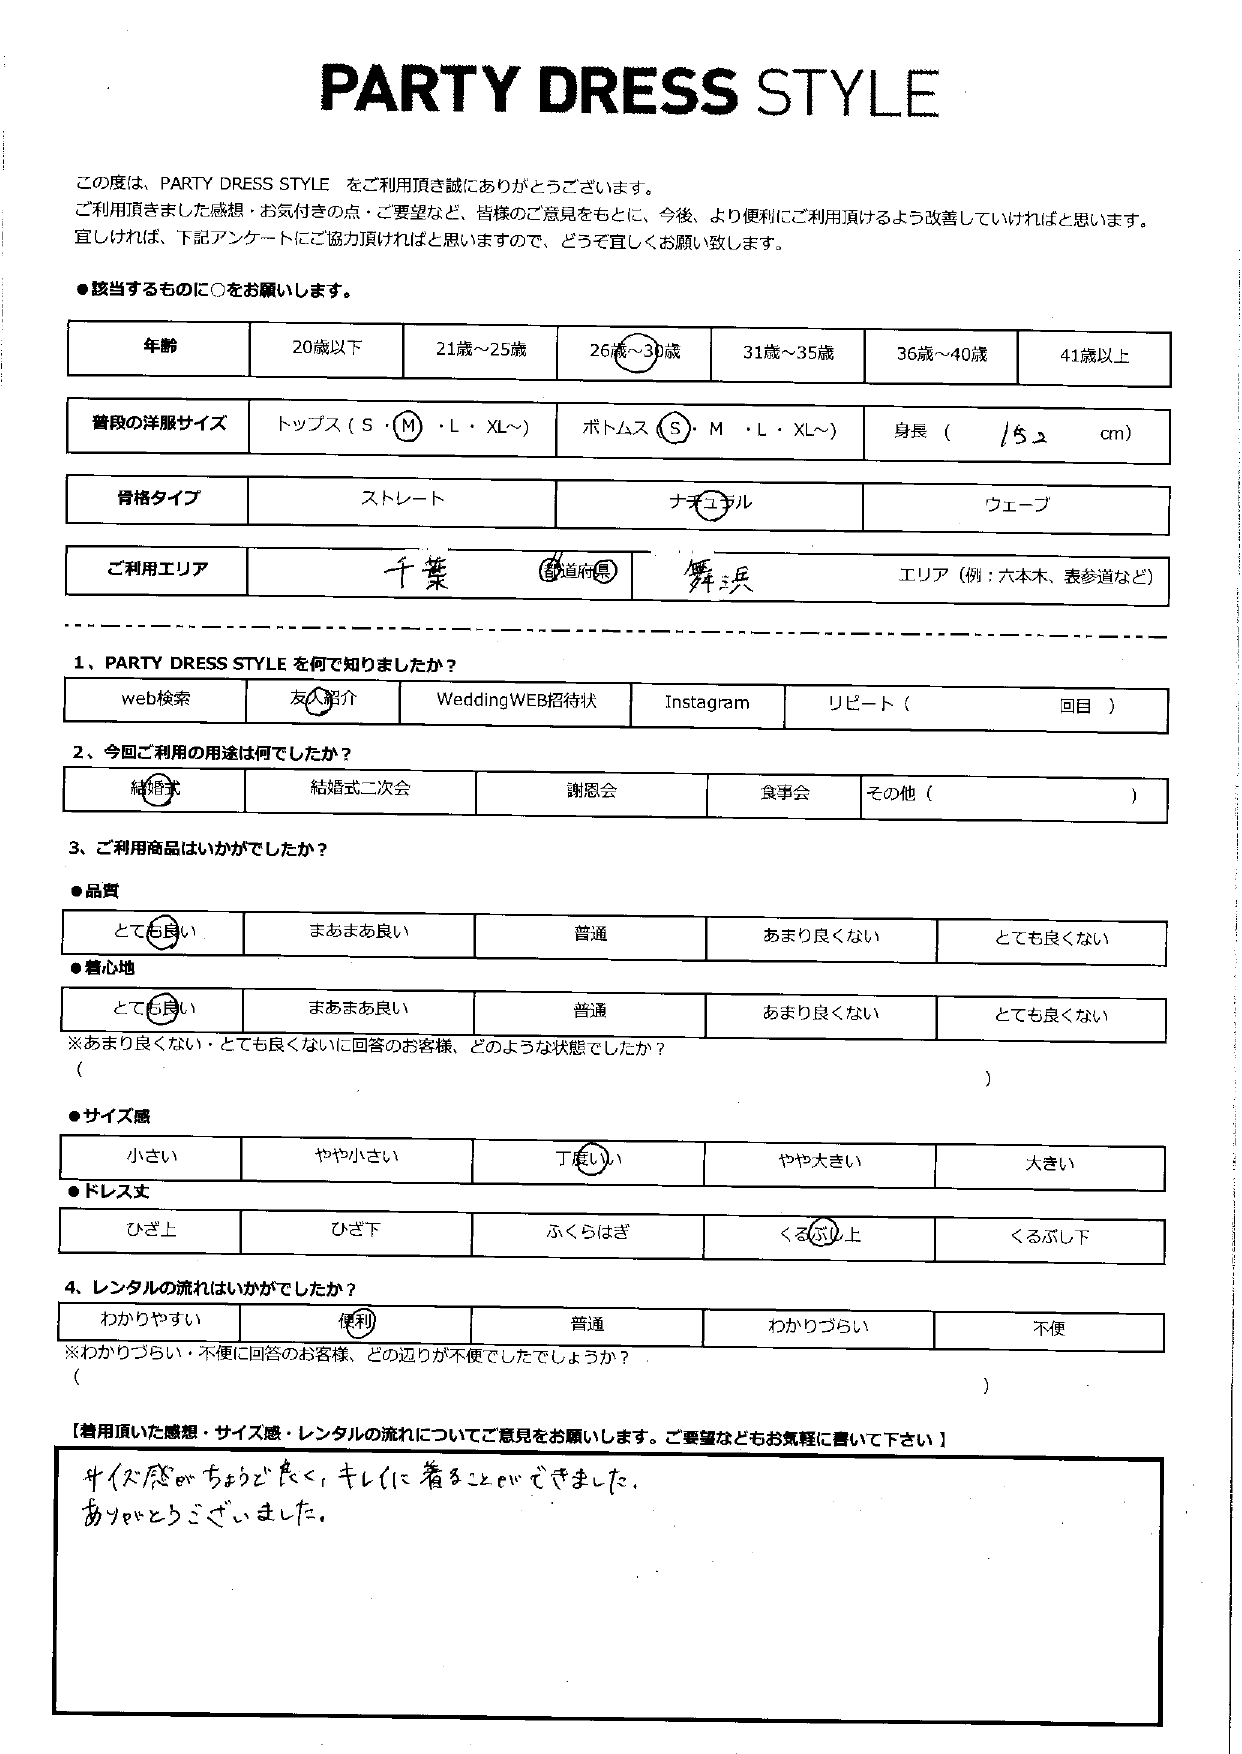 PARTY DRESS STYLE
この度は、PARTY DRESS STYLE　をご利用頂き誠にありがとうございます。
ご利用頂きました感想・お気付きの点・ご要望など、皆様のご意見をもとに、今後、より便利にご利用頂けるよう改善していければと思います。
宜しければ、下記アンケートにご協力頂ければと思いますので、どうぞ宜しくお願い致します。
●該当するものに○をお願いします。
年齢 20歳以下 21歳～25歳 26歳～30歳 31歳～35歳 36歳～40歳 41歳以上
普段の洋服サイズ トップス ( S ・ M ・ L ・ XL～) ボトムス ( S ・ M ・ L ・ XL～) 身長 ( 152 cm)
骨格タイプ ストレート ナチュラル ウェーブ
ご利用エリア 千葉 都道府県 舞浜 エリア（例：六本木、表参道など）
1、PARTY DRESS STYLE を何で知りましたか？
web検索 友人紹介 WeddingWEB招待状 Instagram リピート（ 回目 ）
2、今回ご利用の用途は何でしたか？
結婚式 結婚式二次会 謝恩会 食事会 その他（ ）
3、ご利用商品はいかがでしたか？
●品質
とても良い まあまあ良い 普通 あまり良くない とても良くない
●着心地
とても良い まあまあ良い 普通 あまり良くない とても良くない
※あまり良くない・とても良くないに回答のお客様、どのような状態でしたか？
（ ）
●サイズ感
小さい やや小さい 丁度いい やや大きい 大きい
●ドレス丈
ひざ上 ひざ下 ふくらはぎ くるぶし上 くるぶし下
4、レンタルの流れはいかがでしたか？
わかりやすい 便利 普通 わかりづらい 不便
※わかりづらい・不便に回答のお客様、どの辺りが不便でしたでしょうか？
（ ）
【着用頂いた感想・サイズ感・レンタルの流れについてご意見をお願いします。ご要望などもお気軽に書いて下さい 】
サイズ感がちょうど良く、キレイに着ることができました。
ありがとうございました。